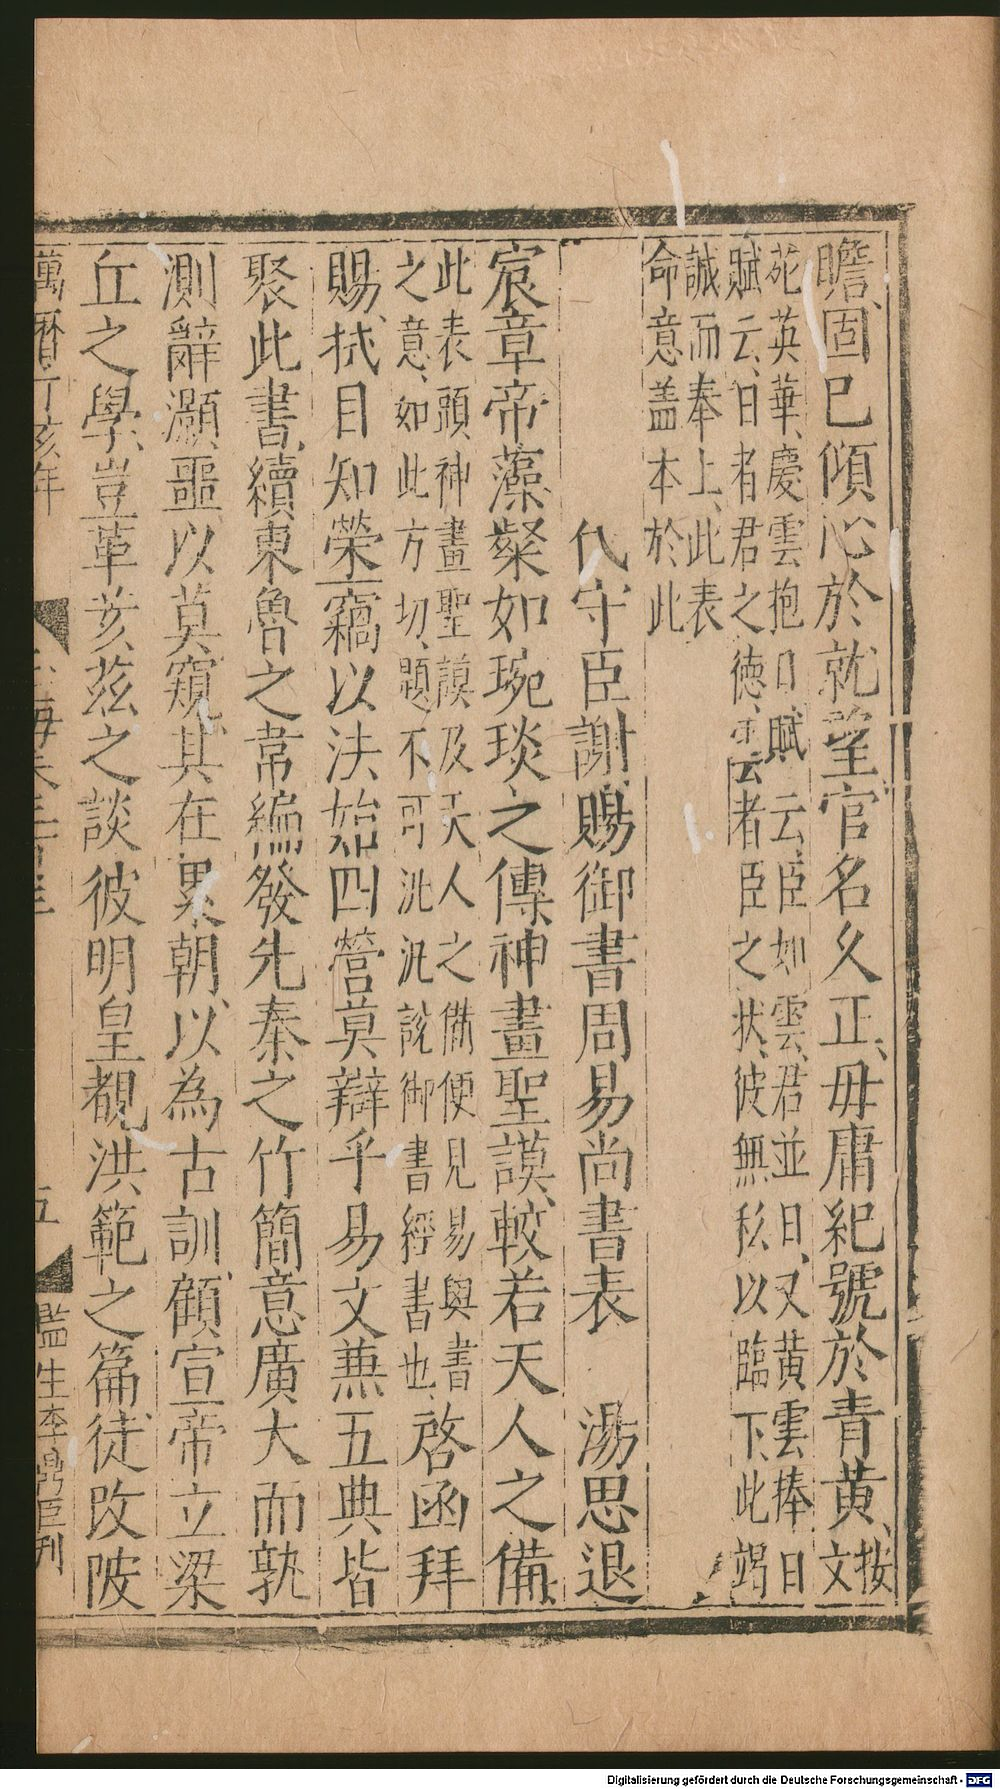 瞻、固已傾心於就望官名久正、毋庸紀號於青黃、按文
苑英華、慶雲抱日賦云、臣如雲、君並日、又黃雲捧日
賦云、日者君之德、雲者臣之状、彼無私以臨下、此竭
誠而奉上、此表
命意盖本於此
代守臣謝賜御書周易尚書表　湯思退
宸章帝藻粲如琬琰之傳神畫聖謨、較若天人之備
此表頭神畫聖謨及天人之備便見易與書
之意、如此方切、題不可泚泚說御書經書也、啓函拜
賜、拭目知榮竊以法始四營莫辯乎易文兼五典皆
聚此書、續東魯之韋編發先秦之竹簡意廣大而孰
測辭灝噩以莫窺其在累朝、以為古訓顧宣帝立梁
丘之學、豈革亥茲之談彼明皇覩洪範之篇徒改陂
萬曆丁亥年
五
監生李鼎臣刊
Digitalisierung gefördert durch die Deutsche Forschungsgemeinschaft - DFG